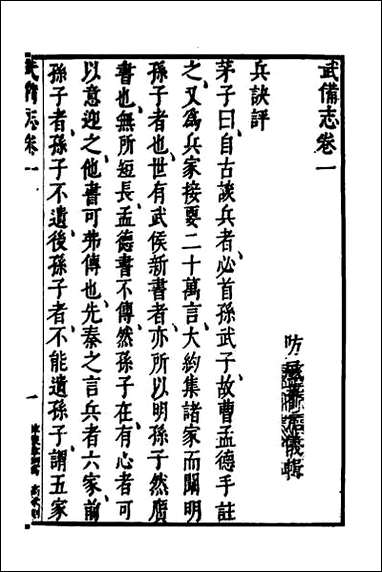 武備志卷一
防風茅元儀輯
兵訣評
茅子曰自古談兵者必首孫武子故曹孟德手註
之又爲兵家接要二十萬言大約集諸家而闡明
孫子者也世有武侯新書者亦所以明孫子然贋
書也無所短長孟德書不傳然孫子在有心者可
以意迎之他書可弗傳也先秦之言兵者六家前
孫子者孫子不遺後孫子者不能遺孫子謂五家
武備志卷一
一